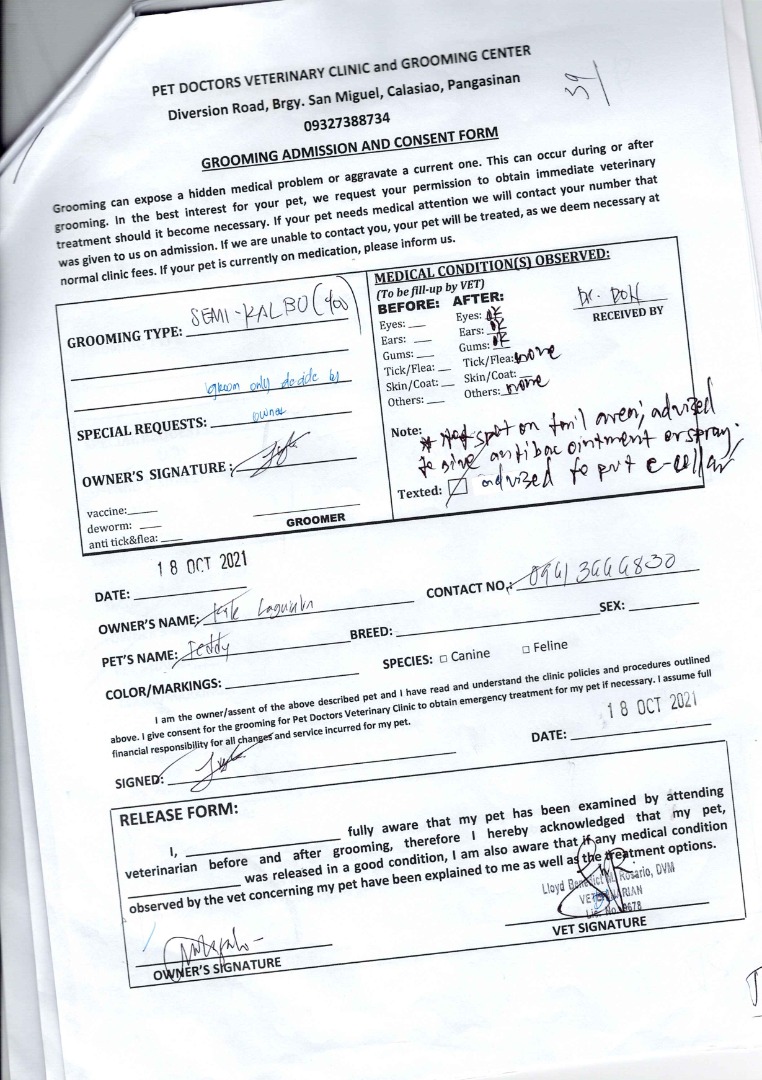 PET DOCTORS VETERINARY CLINIC and GROOMING CENTER
Diversion Road, Brgy. San Miguel, Calasiao, Pangasinan
09327388734
39/
GROOMING ADMISSION AND CONSENT FORM
Grooming can expose a hidden medical problem or aggravate a current one. This can occur during or after
grooming. In the best interest for your pet, we request your permission to obtain immediate veterinary
treatment should it become necessary. If your pet needs medical attention we will contact your number that
was given to us on admission. If we are unable to contact you, your pet will be treated, as we deem necessary at
normal clinic fees. If your pet is currently on medication, please inform us.
GROOMING TYPE: SEMI-KALBO
groom only decide by
SPECIAL REQUESTS: owner
OWNER'S SIGNATURE:
vaccine:
deworm:
anti tick&flea:
GROOMER
MEDICAL CONDITION(S) OBSERVED:
(To be fill-up by VET)
BEFORE: AFTER:
Eyes: Eyes: OK
Ears: Ears: OK
Gums: Gums: OK
Tick/Flea: Tick/Flea: none
Skin/Coat: Skin/Coat:
Others: Others: none
Dr. DON
RECEIVED BY
Note: * Hot spot on tail area; advised
to give antibac ointment or spray.
Texted: advised to put e-collar
18 OCT 2021
DATE:
CONTACT NO.:
OWNER'S NAME:
SEX:
PET'S NAME: Teddy BREED:
COLOR/MARKINGS: SPECIES: □ Canine □ Feline
I am the owner/assent of the above described pet and I have read and understand the clinic policies and procedures outlined
above. I give consent for the grooming for Pet Doctors Veterinary Clinic to obtain emergency treatment for my pet if necessary. I assume full
financial responsibility for all changes and service incurred for my pet.
18 OCT 2021
SIGNED: DATE:
RELEASE FORM:
I, fully aware that my pet has been examined by attending
veterinarian before and after grooming, therefore I hereby acknowledged that my pet,
was released in a good condition, I am also aware that if any medical condition
observed by the vet concerning my pet have been explained to me as well as the treatment options.
Lloyd Benedict M. Rosario, DVM
VETERINARIAN
Lic. No.
VET SIGNATURE
OWNER'S SIGNATURE